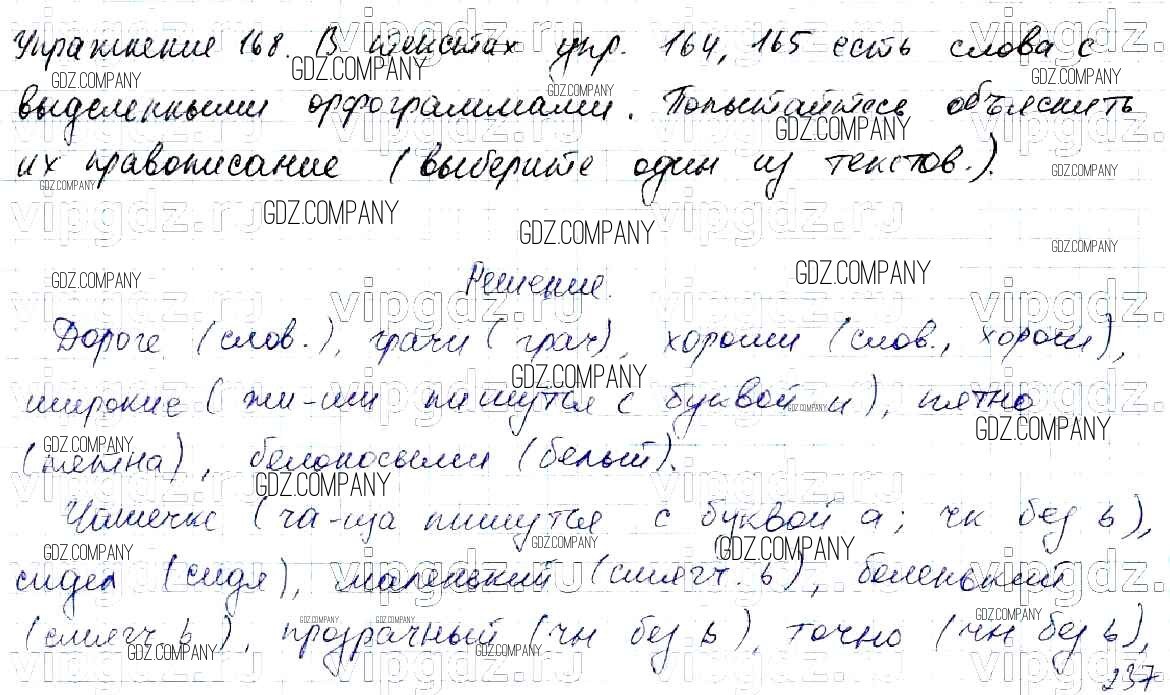 Упражнение 168. В текстах упр. 164, 165 есть слова с
выделенными орфограммами. Попытайтесь объяснить
их правописание (выберите один из текстов.).
Решение.
Дороге (слов.), грачи (грач), хороши (слов., хорош),
широкие (жи-ши пишутся с буквой и), пятно
(пятна), белоносыми (белый).
Чашечке (ча-ща пишутся с буквой а; чк без ь),
сидел (сидя), маленький (смягч. ь), беленький
(смягч. ь), прозрачный (чн без ь), точно (чн без ь),
237
GDZ.COMPANY
vipgdz.ru